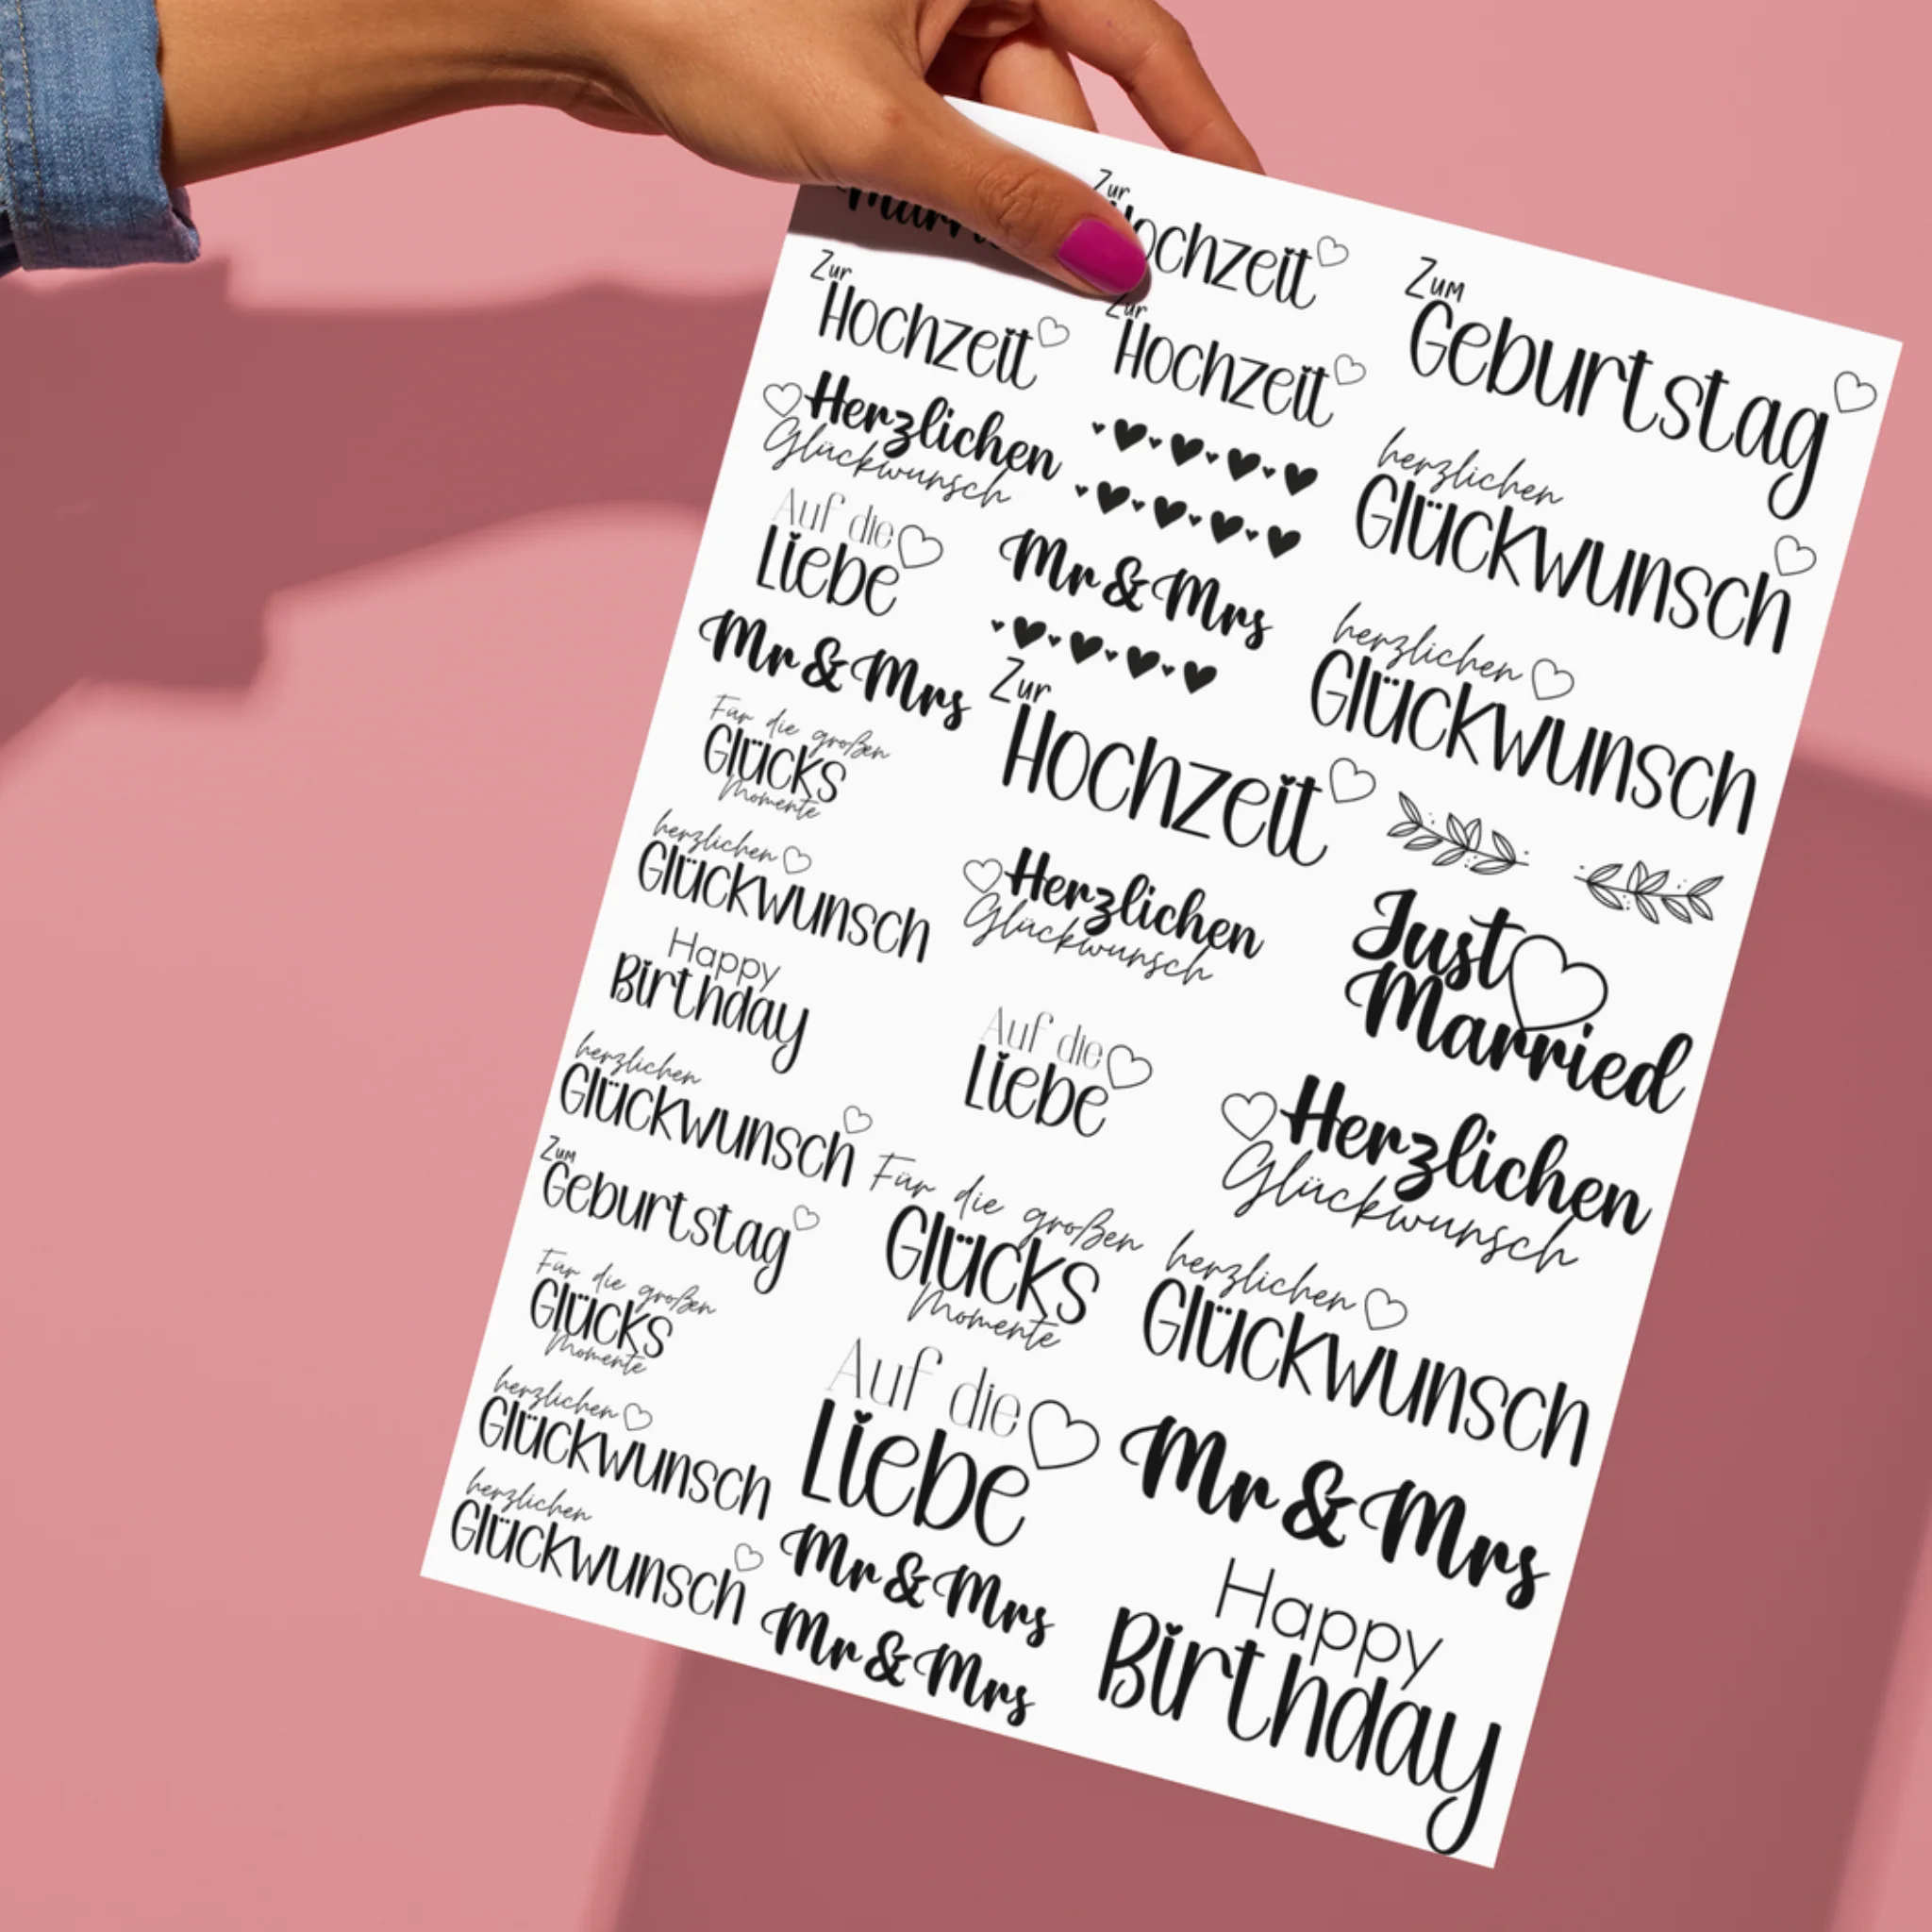 Married
Zur
Hochzeit
Herzlichen
Glückwunsch
Auf die
Liebe
Mr & Mrs
Für die großen
Glücks
Momente
herzlichen
Glückwunsch
Happy
Birthday
herzlichen
Glückwunsch
Zum
Geburtstag
Für die großen
Glücks
Momente
herzlichen
Glückwunsch
herzlichen
Glückwunsch
Zur
Hochzeit
Zur
Hochzeit
Mr & Mrs
Zur
Hochzeit
Herzlichen
Glückwunsch
Auf die
Liebe
Für die großen
Glücks
Momente
Auf die
Liebe
Mr & Mrs
Mr & Mrs
Zum
Geburtstag
herzlichen
Glückwunsch
herzlichen
Glückwunsch
Just
Married
Herzlichen
Glückwunsch
herzlichen
Glückwunsch
Mr & Mrs
Happy
Birthday